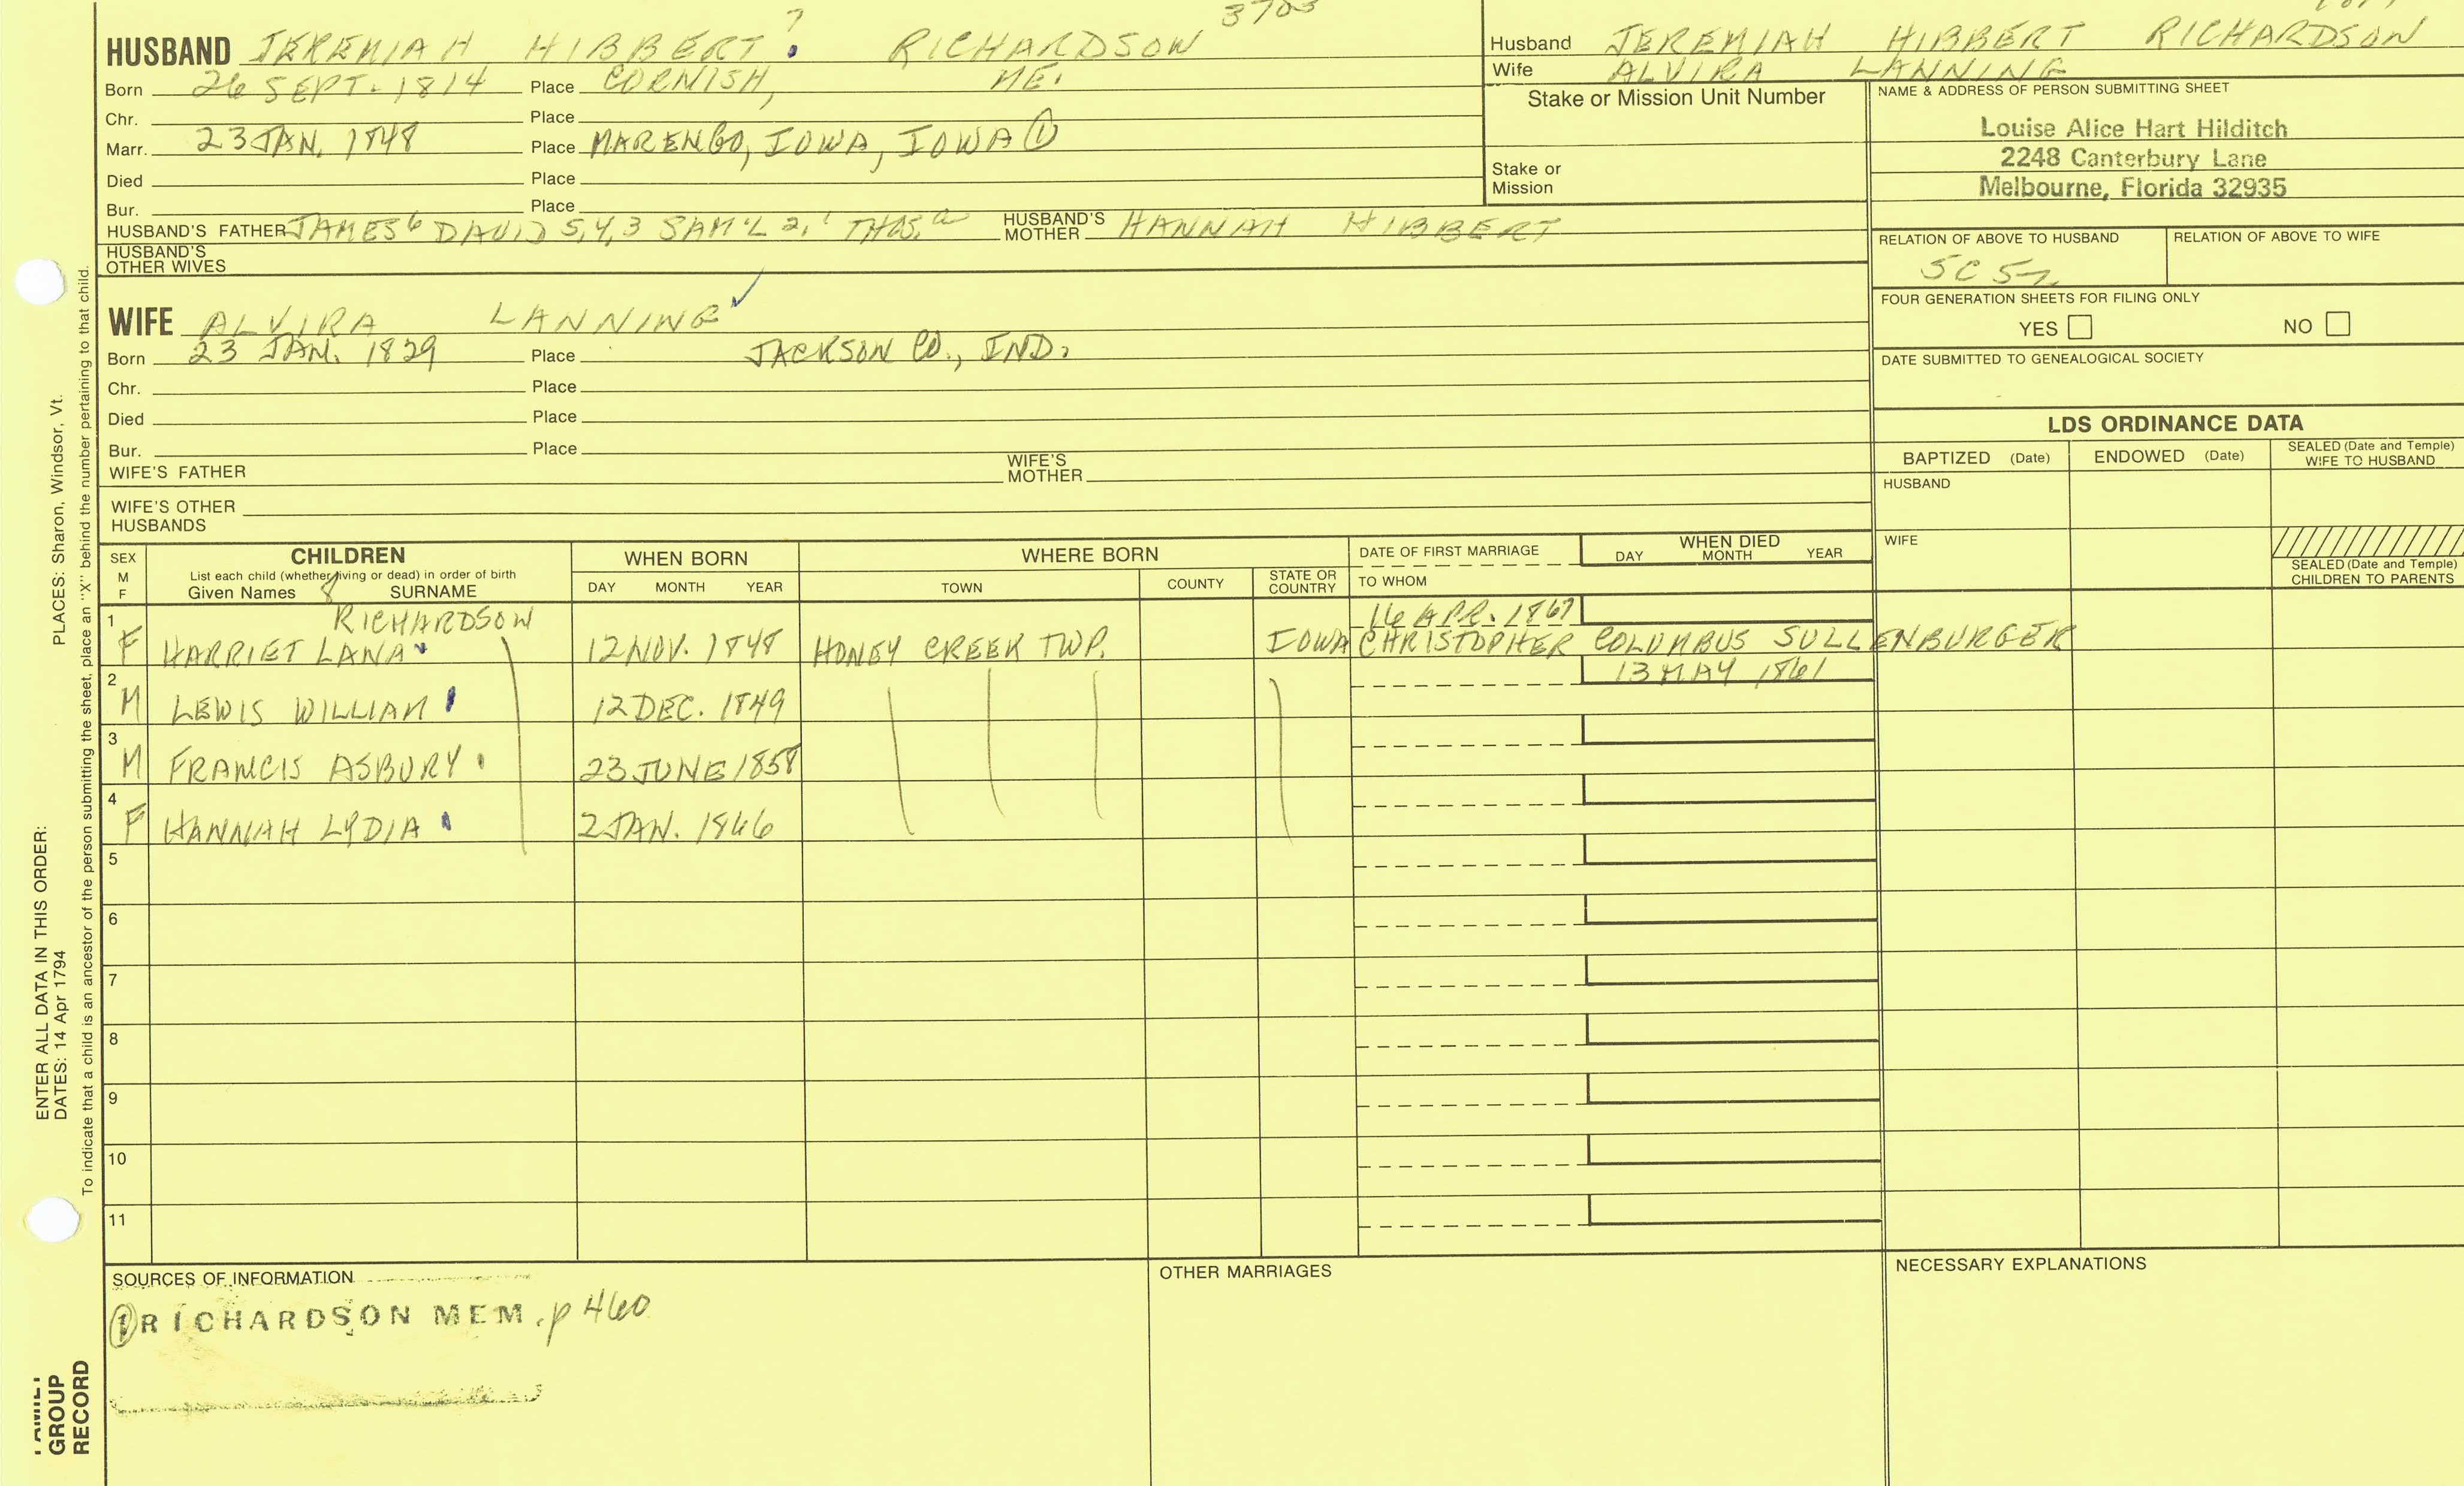 3703
HUSBAND JEREMIAH HIBBERT ? RICHARDSON
Born 26 SEPT. 1814 Place CORNISH, ME.
Chr. Place
Marr. 23 JAN. 1848 Place MARENGO, IOWA, IOWA ①
Died Place
Bur. Place
HUSBAND'S FATHER JAMES 6 DAVID 5,4,3 SAM'L 2,1 THOS. a HUSBAND'S MOTHER HANNAH HIBBERT
HUSBAND'S OTHER WIVES
Husband JEREMIAH HIBBERT RICHARDSON
Wife ALVIRA LANNING
Stake or Mission Unit Number
Stake or Mission
NAME & ADDRESS OF PERSON SUBMITTING SHEET
Louise Alice Hart Hilditch
2248 Canterbury Lane
Melbourne, Florida 32935
RELATION OF ABOVE TO HUSBAND RELATION OF ABOVE TO WIFE
FOUR GENERATION SHEETS FOR FILING ONLY
YES NO
DATE SUBMITTED TO GENEALOGICAL SOCIETY
WIFE ALVIRA LANNING ✓
Born 23 JAN. 1829 Place JACKSON CO., IND.
Chr. Place
Died Place
Bur. Place
WIFE'S FATHER WIFE'S MOTHER
WIFE'S OTHER HUSBANDS
LDS ORDINANCE DATA
BAPTIZED (Date) ENDOWED (Date) SEALED (Date and Temple) WIFE TO HUSBAND
HUSBAND
WIFE
SEALED (Date and Temple) CHILDREN TO PARENTS
SEX M F
CHILDREN
List each child (whether living or dead) in order of birth
Given Names 8 SURNAME
WHEN BORN
DAY MONTH YEAR
WHERE BORN
TOWN COUNTY STATE OR COUNTRY
DATE OF FIRST MARRIAGE
TO WHOM
WHEN DIED
DAY MONTH YEAR
1 RICHARDSON 16 APR. 1867
F HARRIET LANA 12 NOV. 1848 HONEY CREEK TWP. IOWA CHRISTOPHER COLUMBUS SULLENBURGER
2 13 MAY 1861
M LEWIS WILLIAM 12 DEC. 1849
3
M FRANCIS ASBURY 23 JUNE 1858
4
F HANNAH LYDIA 2 JAN. 1846
5
6
7
8
9
10
11
SOURCES OF INFORMATION
① RICHARDSON MEM. p 460
OTHER MARRIAGES
NECESSARY EXPLANATIONS
ENTER ALL DATA IN THIS ORDER:
DATES: 14 Apr 1794
PLACES: Sharon, Windsor, Vt.
To indicate that a child is an ancestor of the person submitting the sheet, place an "X" behind the number pertaining to that child.
FAMILY
GROUP
RECORD